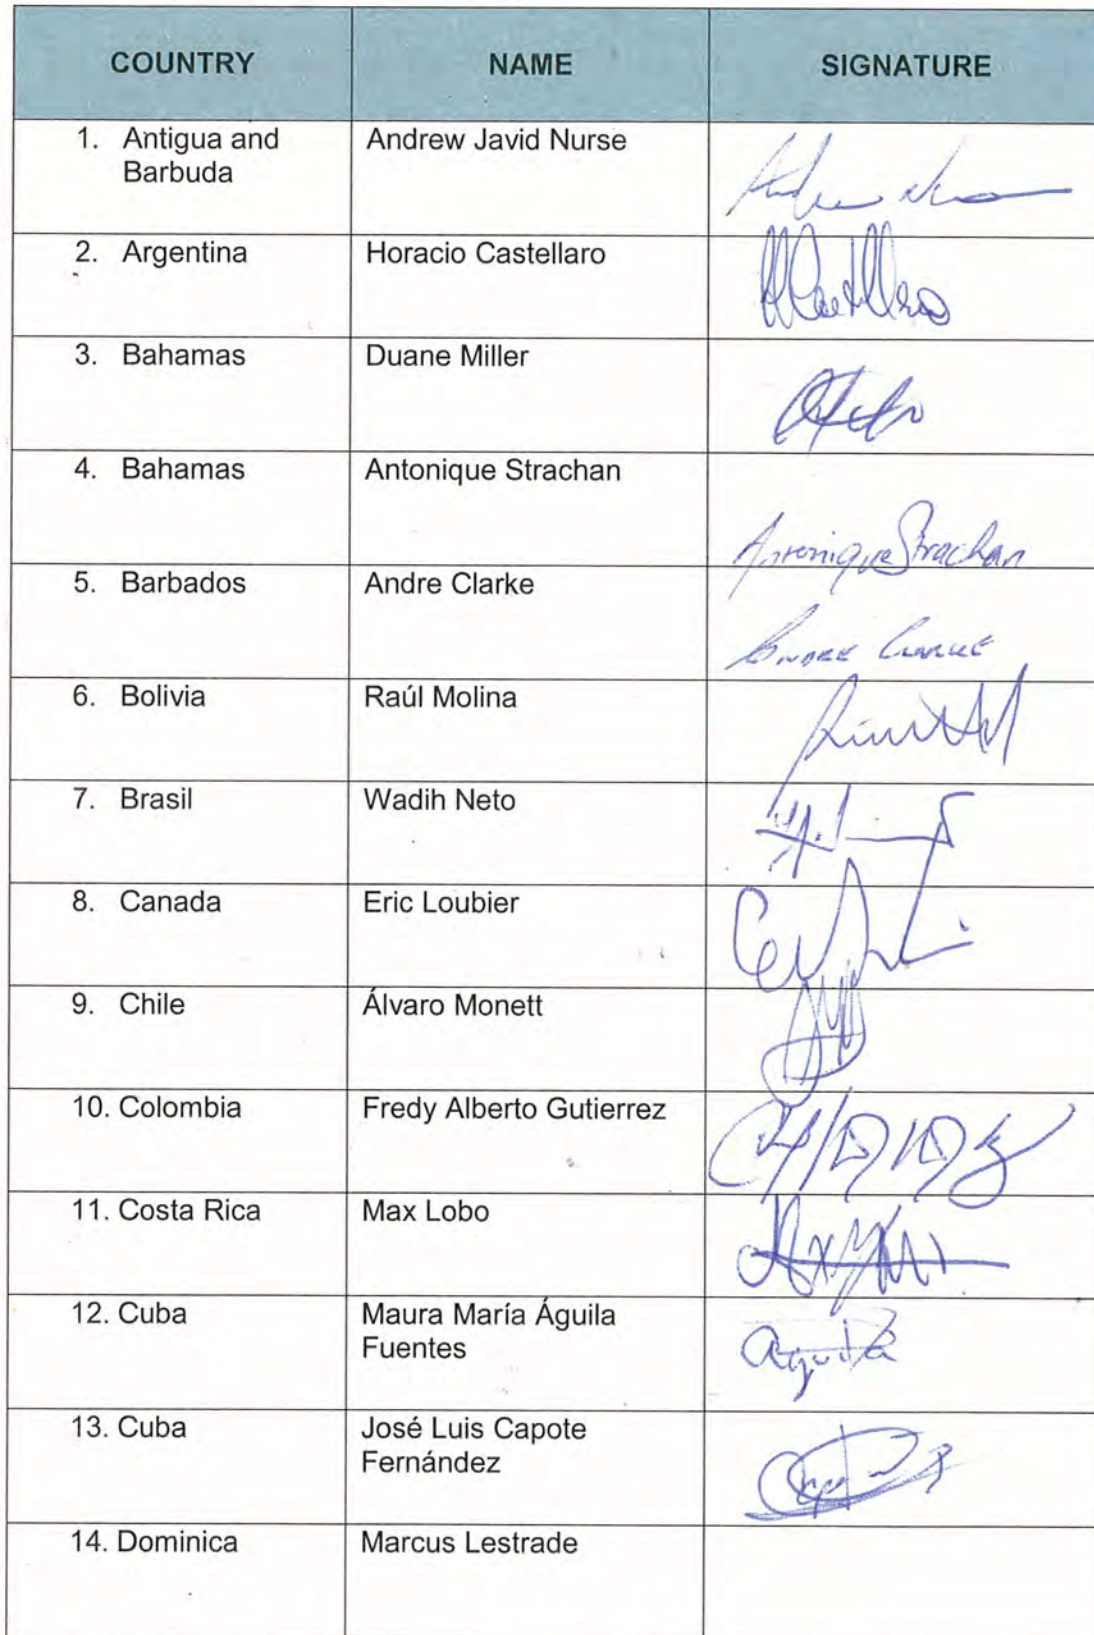 COUNTRY NAME SIGNATURE
1. Antigua and Andrew Javid Nurse
Barbuda
2. Argentina Horacio Castellaro
3. Bahamas Duane Miller
4. Bahamas Antonique Strachan
Antonique Strachan
5. Barbados Andre Clarke
Andre Clarke
6. Bolivia Raúl Molina
7. Brasil Wadih Neto
8. Canada Eric Loubier
9. Chile Álvaro Monett
10. Colombia Fredy Alberto Gutierrez
11. Costa Rica Max Lobo
12. Cuba Maura María Águila
Fuentes
Aguila
13. Cuba José Luis Capote
Fernández
14. Dominica Marcus Lestrade